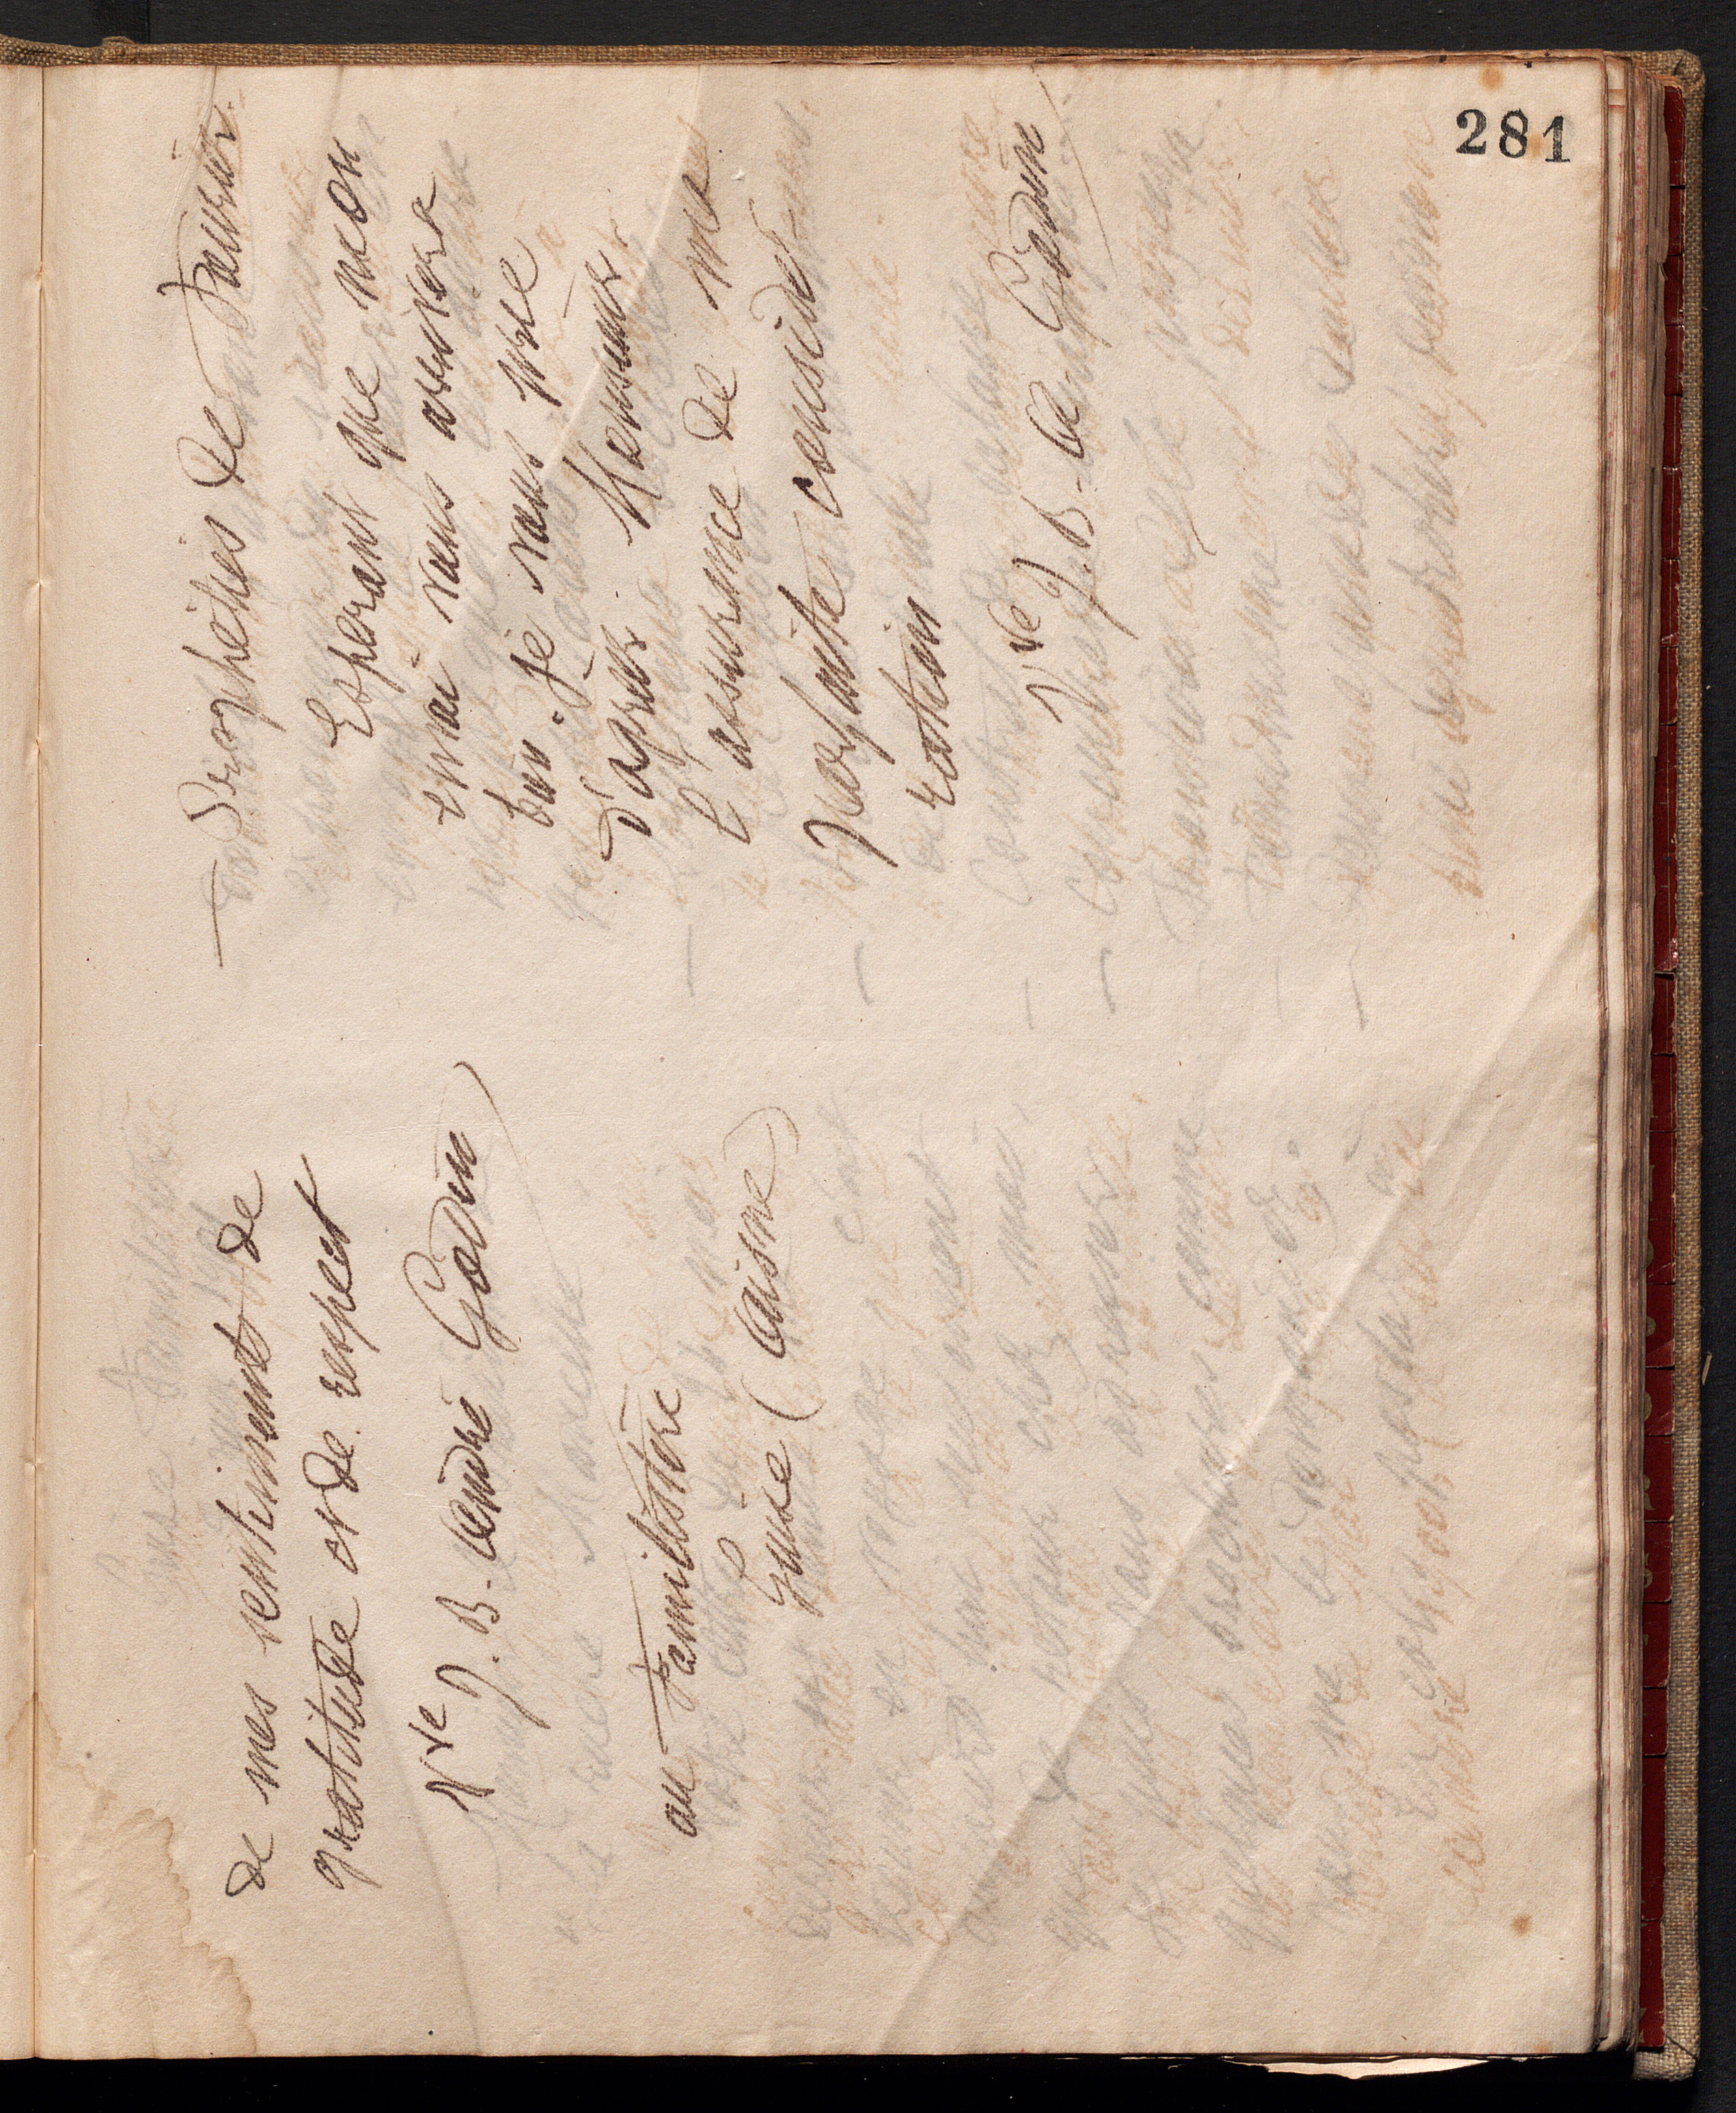 281
de mes sentiments de
gratitude et de respect
Vve J. B. André Godin
au Familistère
Guise (Aisne)
— Prophéties de
Espérant que mon
envoi vous arrivera
bien. Je vous prie
d'agréer Monsieur
l'assurance de ma
parfaite considé-
ration
Vve J. B. A. Godin